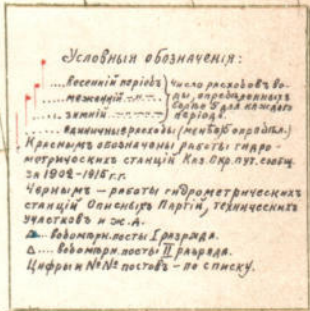 Условныя обозначенія:
....весенній періодъ
....меженній —„—„—
....зимній —„—„—
число расходовъ во-
ды, опредѣленныхъ
болѣе 5 для каждаго
періода.
....единичные расходы (менѣе 5 опредѣл.)
Краснымъ обозначены работы гидро-
метрическихъ станцій Каз. Окр. пут. сообщ.
за 1908-1915 г.г.
Чернымъ – работы гидрометрическихъ
станцій Описныхъ Партій, техническихъ
участковъ и ж.д.
Δ.... водомѣрн. посты I разряда.
Δ.... водомѣрн. посты II разряда.
Цифры и №№ постовъ – по списку.